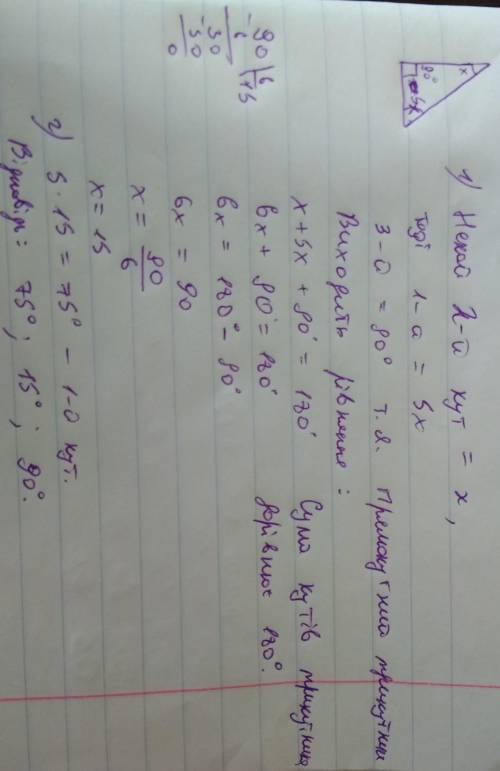 x
90°
5x
1) Нехай 2-й кут = x,
тоді 1-а = 5x
3-й = 90° т.я. прямокутний трикутник
Виходить рівняння:
x + 5x + 90° = 180° Сума кутів трикутника
6x + 90° = 180° дорівнює 180°.
6x = 180° - 90°
6x = 90
x = 90/6
x = 15
90 | 6
- 6 | 15
30
- 30
0
2) 5 · 15 = 75° - 1-й кут.
Відповідь: 75°; 15°; 90°.